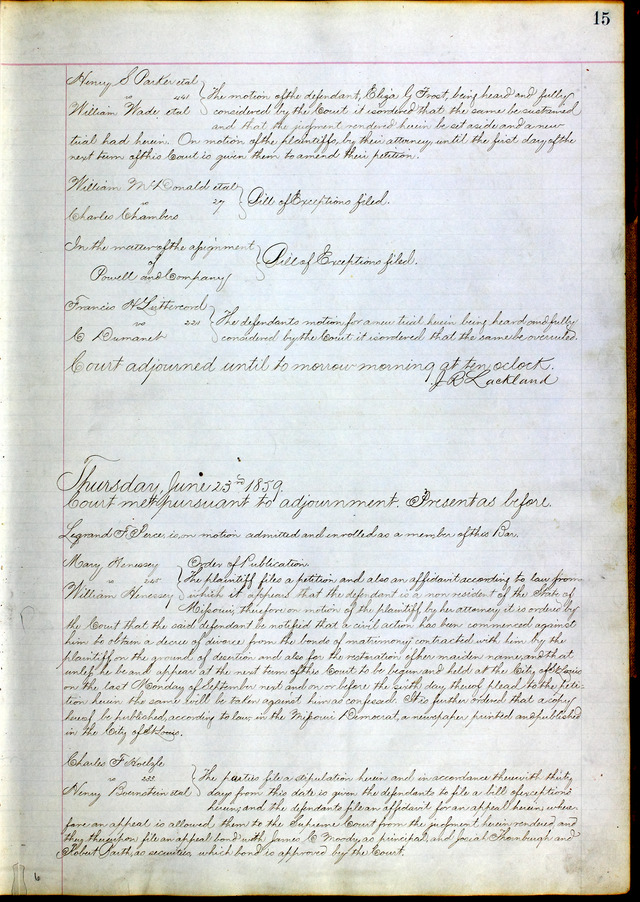 15
Henry S Parker etal
vs 441 The motion of the defendant, Eliza G Frost, being heard and fully
William Wade etal considered by the Court it is ordered that the same be sustained
and that the judgment rendered herein be set aside and a new
trial had herein. On motion of the plaintiffs, by their attorney, until the first day of the
next term of this Court is given them to amend their petition.
William McDonald etal
vs 27 Bill of Exceptions filed.
Charles Chambers
In the matter of the assignment
of Bill of Exceptions filed.
Powell and Company
Francis H
vs 221 The defendants motion for a new trial herein being heard and fully
C Dumanet considered by the Court it is ordered that the same be overruled.
Court adjourned until to morrow morning at ten oclock.
J R Lackland
Thursday, June 23rd 1859.
Court met pursuant to adjournment. Present as before.
Legrand F. Perce, is on motion admitted and enrolled as a member of this Bar.
Mary Henessey Order of Publication
vs 245 The plaintiff files a petition and also an affidavit according to law from
William Henessey which it appears that the defendant is a non resident of the State of
Missouri, therefore on motion of the plaintiff by her attorney it is ordered by
the Court that the said defendant be notified that a civil action has been commenced against
him to obtain a decree of divorce from the bonds of matrimony contracted with him by the
plaintiff on the ground of desertion and also for the restoration of her maiden name, and that
unless he be and appear at the next term of this Court to be begun and held at the City of St Louis
on the last Monday of September next and on or before the sixth day thereof plead to the peti-
tion herein the same will be taken against him as confessed. It is further ordered that a copy
hereof be published, according to law, in the Missouri Democrat, a newspaper printed and published
in the City of St Louis.
Charles F
vs The parties file a stipulation herein and in accordance therewith thirty
Henry Bernstein etal days from this date is given the defendants to file a bill of exceptions
herein, and the defendants file an affidavit for an appeal herein, where-
fore an appeal is allowed them to the Supreme Court from the judgment herein rendered, and
they thereupon file an appeal bond with James C Moody, as principal, and Josiah Thornburgh and
Robert as securities, which bond is approved by the Court.
6